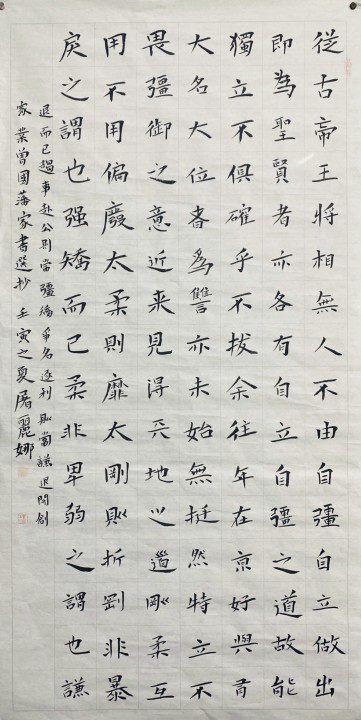 從古帝王將相無人不由自彊自立做出
即為聖賢者亦各有自立自彊之道故能
獨立不俱確乎不拔余往年在京好與有
大名大位者為讐亦未始無挺然特立不
畏彊御之意近来見得天地之道剛柔互
用不用偏廢太柔則靡太剛則折剛非暴
戾之謂也强矯而已柔非卑弱之謂也謙
退而已趨事赴公則當彊矯爭名逐利則當謙退開創
家業曾國藩家書選抄壬寅之夏屠麗娜